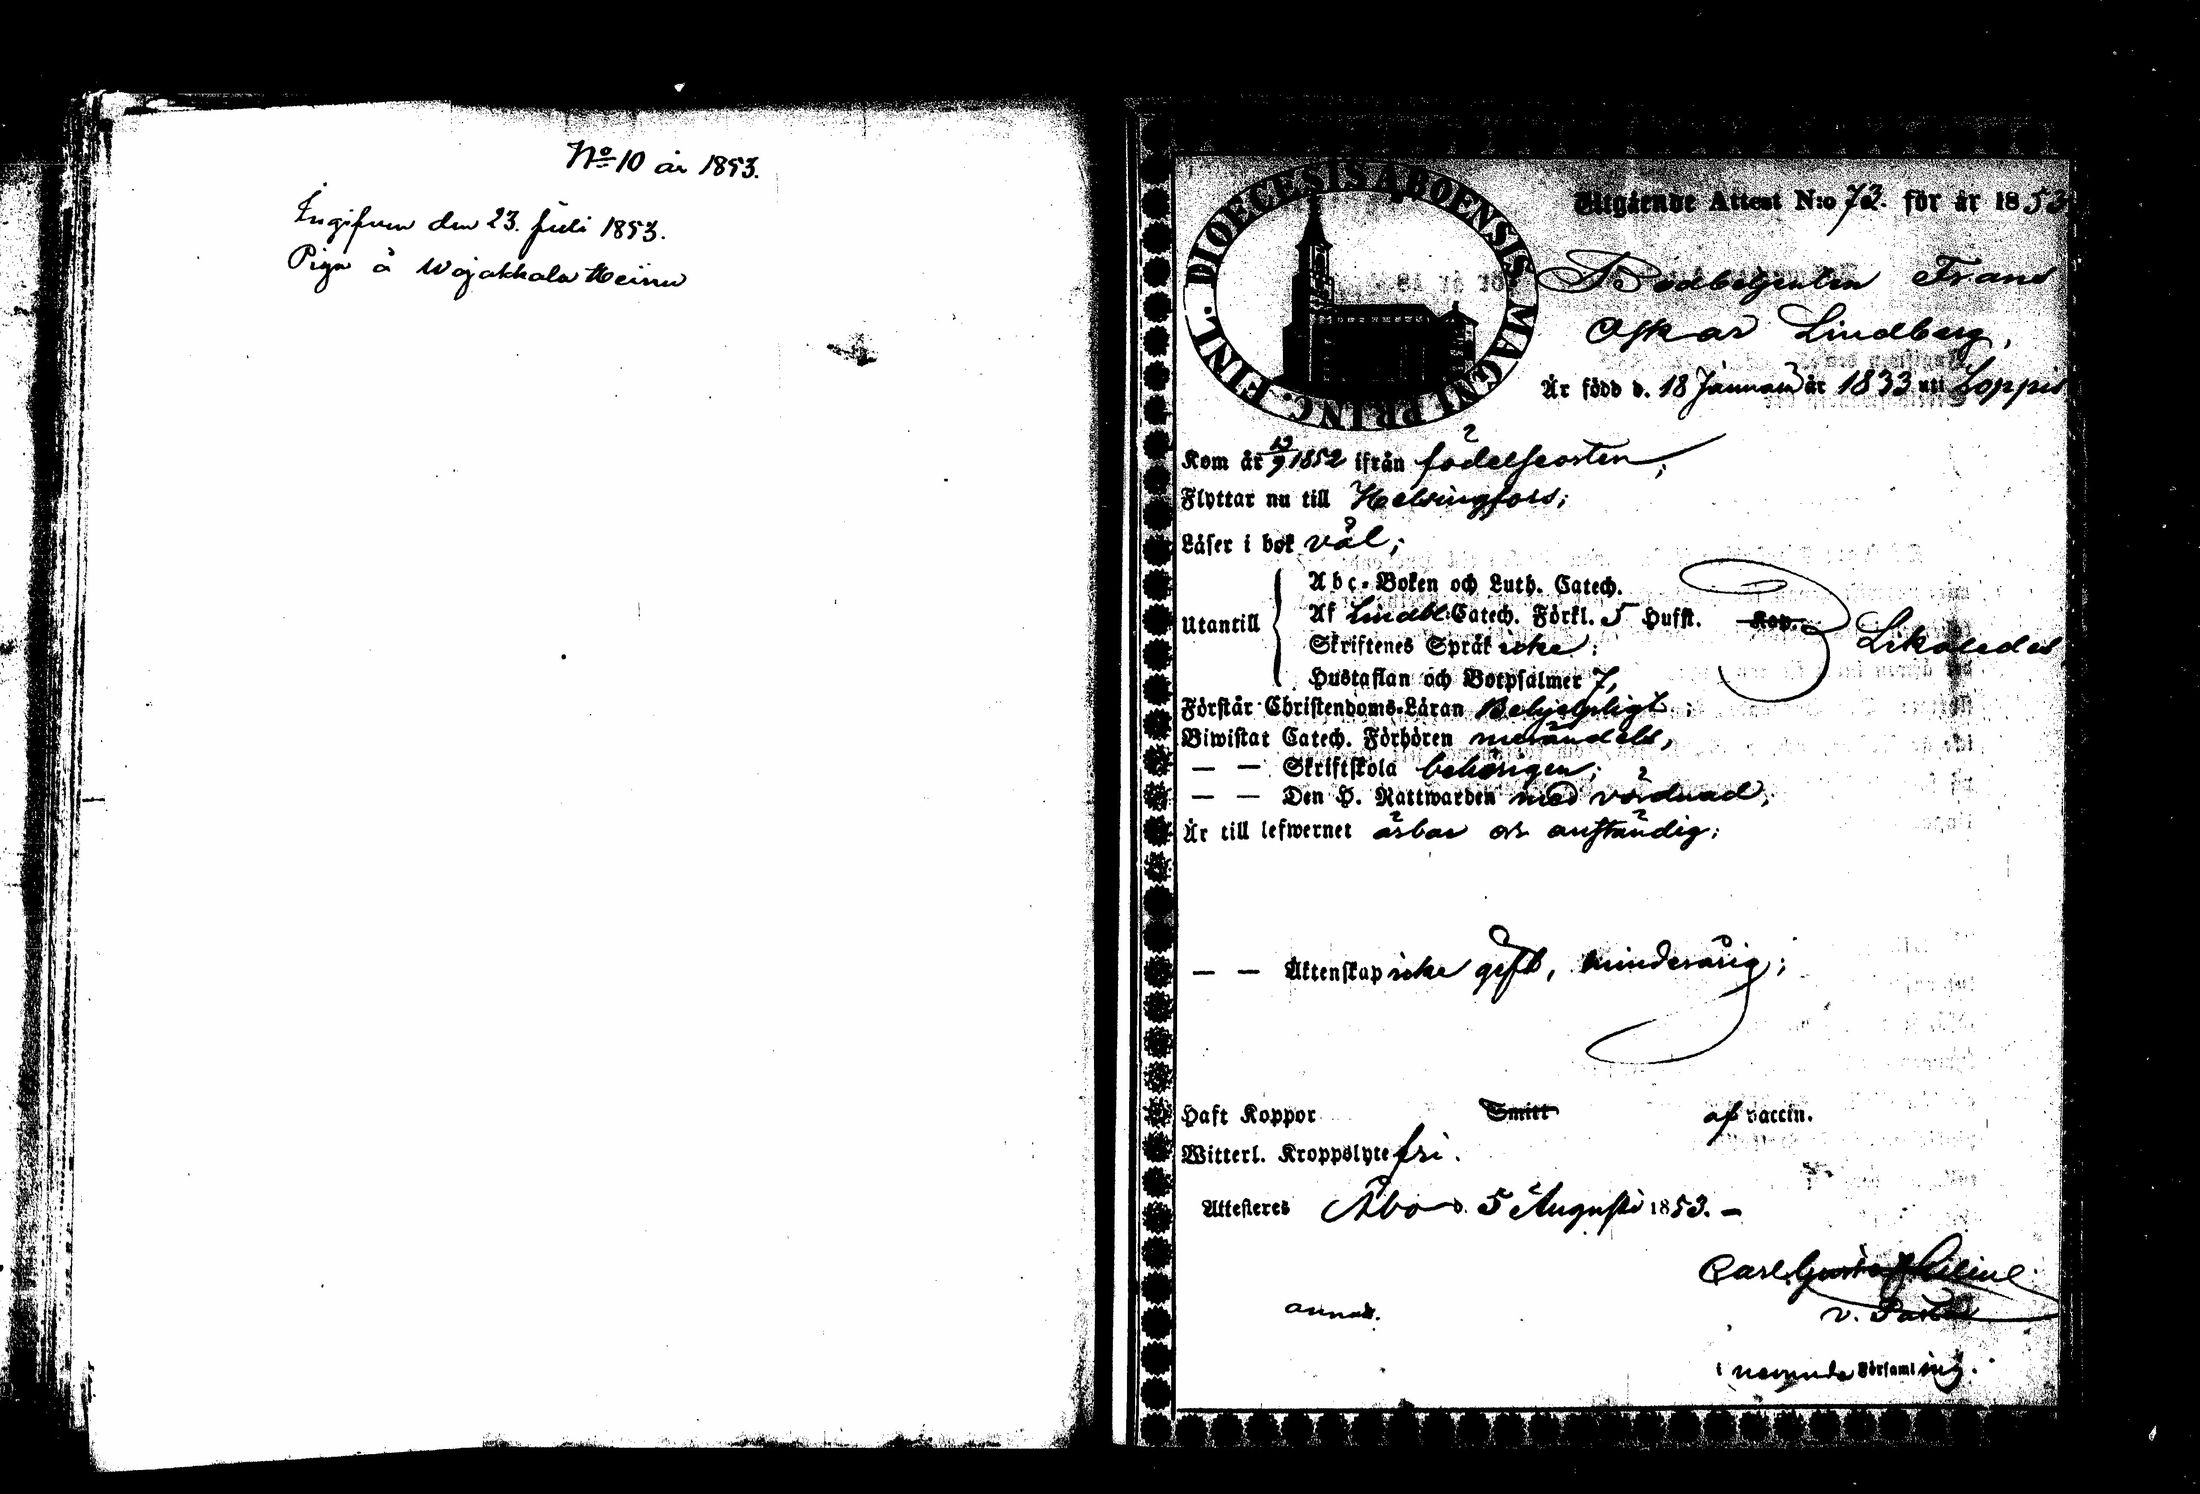 No 10 år 1853.
Ingifven den 23. Juli 1853.
Piga å Wojakkala Heinu
DIOECESIS ABOENSIS MAGNI PRINC. FINL.
Utgående Attest N:o 72. för år 1853
Frans
Oskar Lindberg,
Är född d. 18 Januarii år 1833 uti Loppis
Kom år 13/9 1852 ifrån födelseorten;
Flyttar nu till Helsingfors;
Läser i bok väl;
Utantill
Abc-Boken och Luth. Catech.
Af Lindbl. Catech. Förkl. 5 Hufst. Kap. Likaledes
Skriftenes Språk icke;
Hustaflan och Botpsalmer 7,
Förstår Christendoms-Läran Behjelpligt;
Biwistat Catech. Förhören
— — Skriftskola behörigen;
— — Den H. Nattwarden med vördnad;
Är till lefwernet ärbar och anständig;
— — Äktenskap icke gift, minderårig;
Haft Koppor Smitt af vaccin.
Witterl. Kroppslyte fri.
Attesteres Åbo d. 5 Augusti 1853. –
Carl Gustaf
v. Pastor
i nämnde Församling.